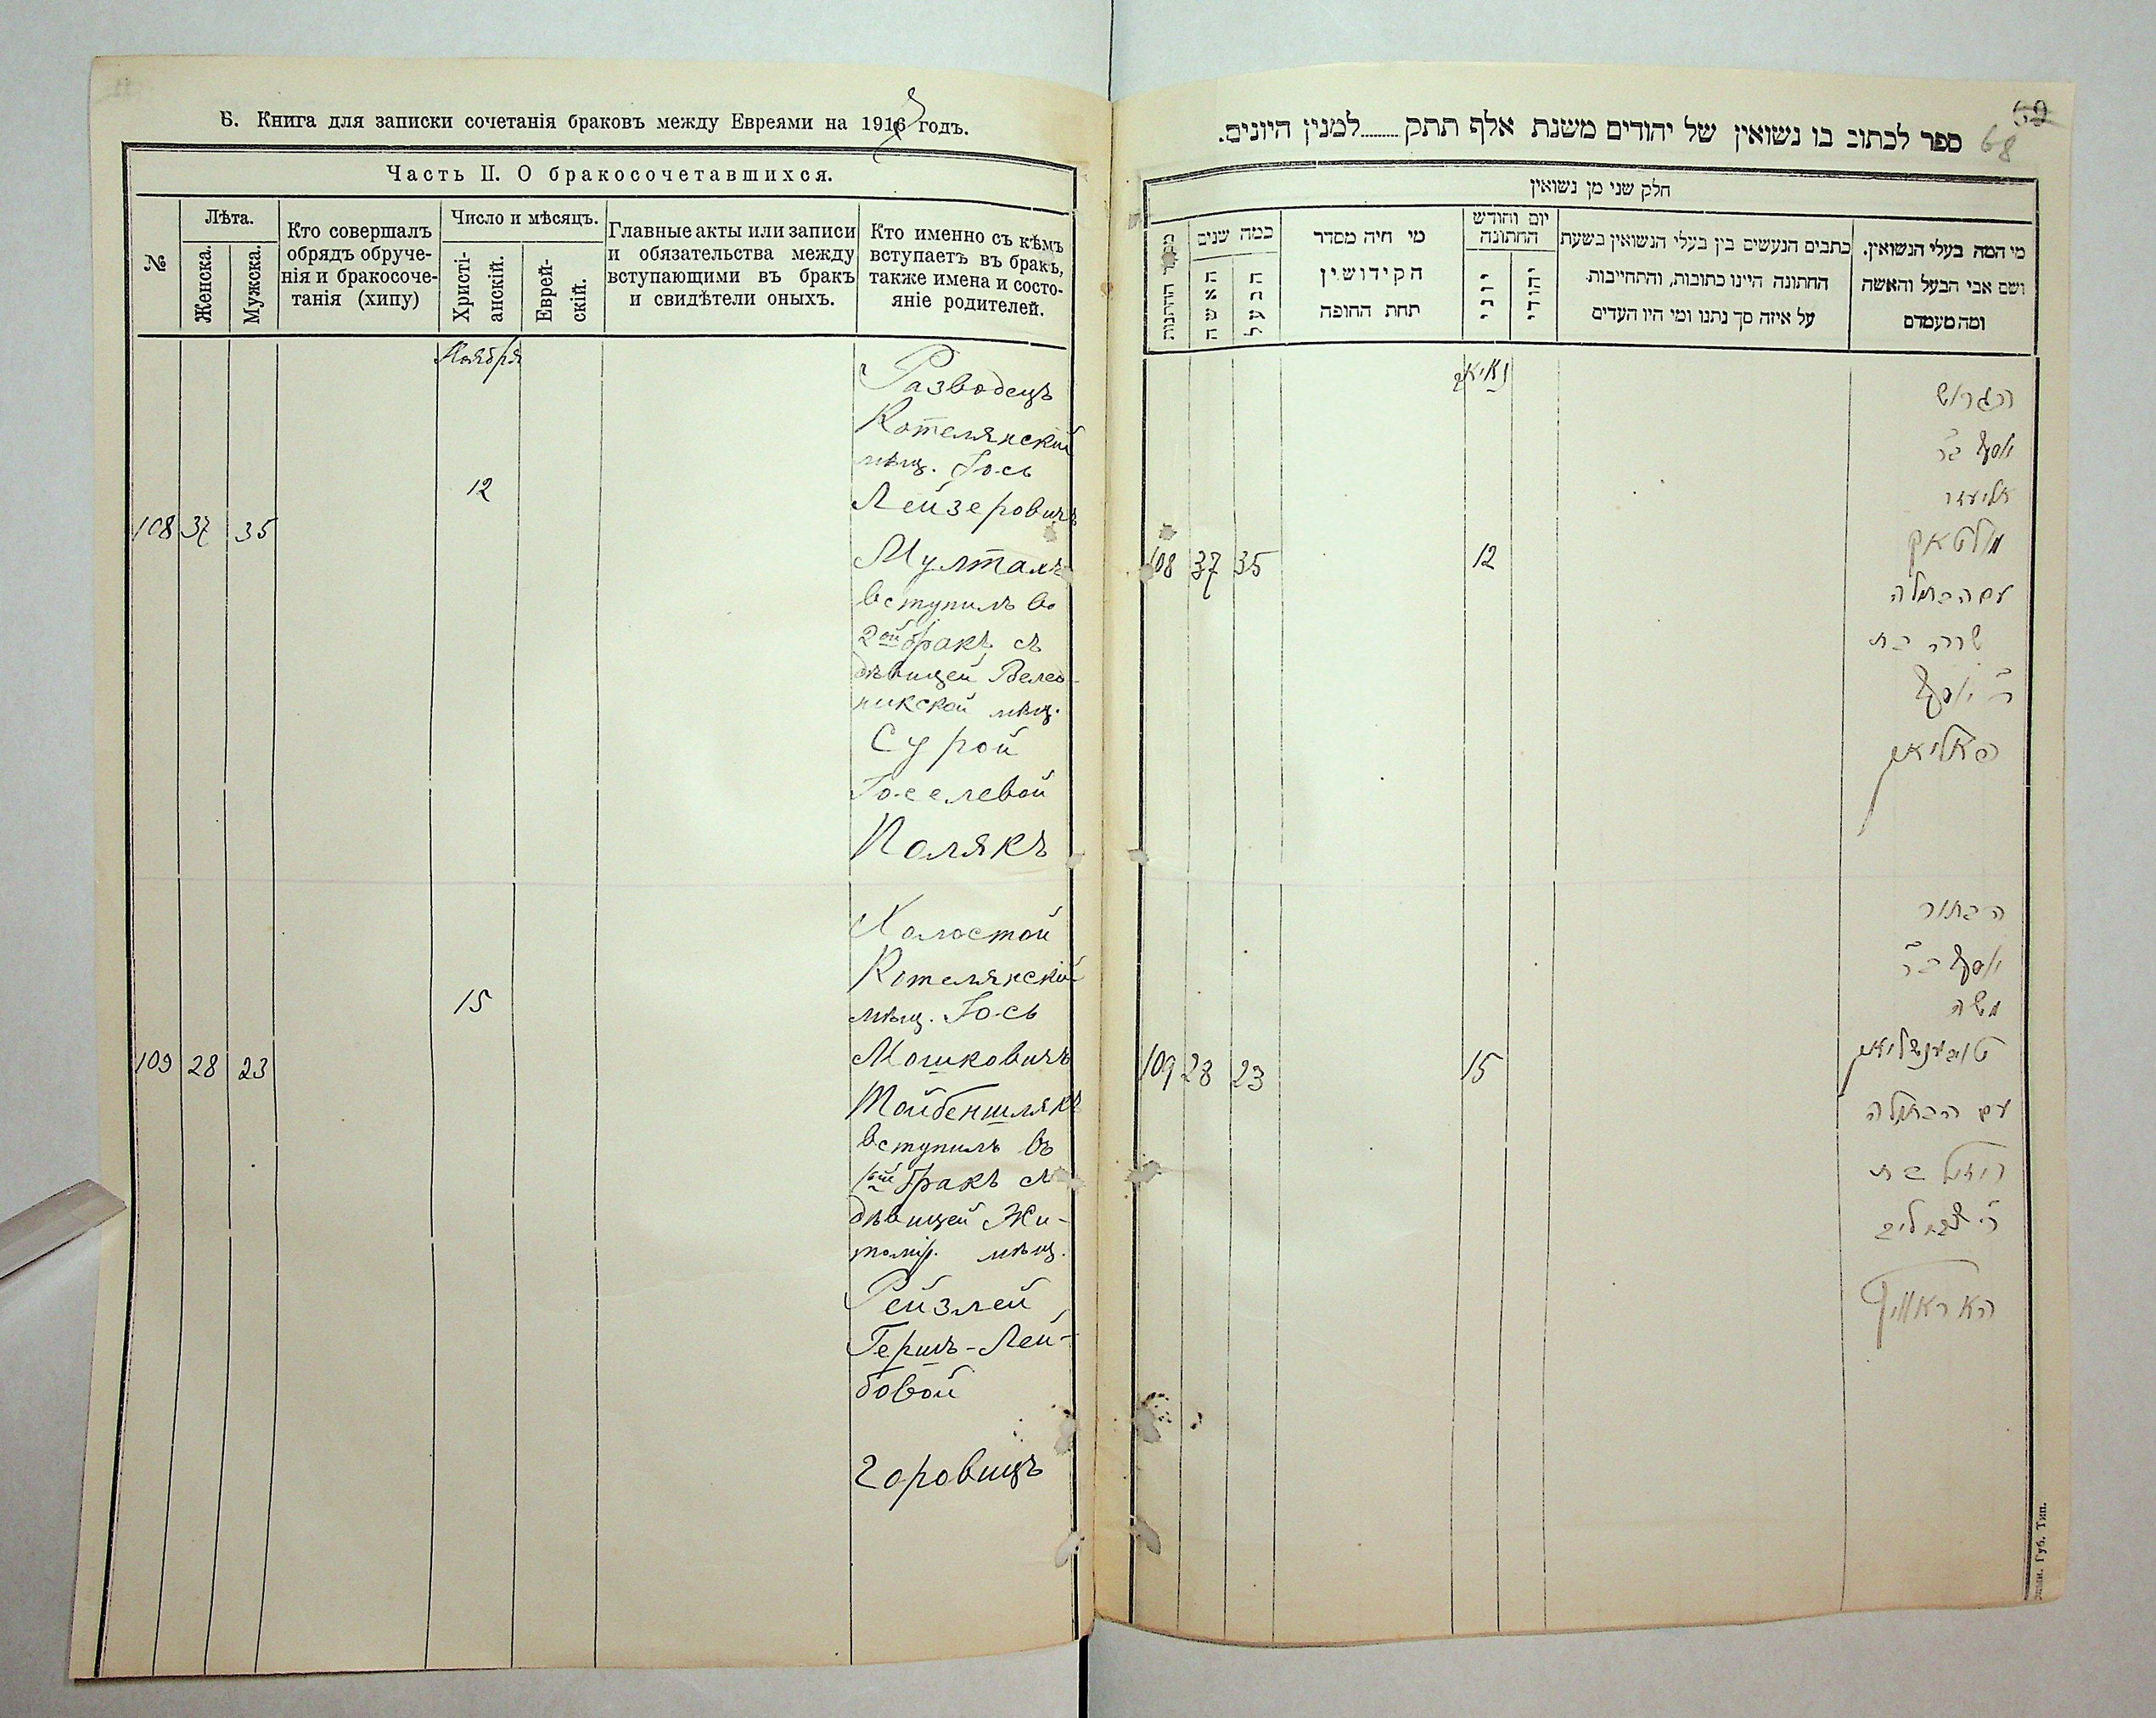 Б. Книга для записки сочетанія браковъ между Евреями на 1918 годъ.
Часть II. О бракосочетавшихся.
№
Лѣта.
Женска.
Мужска.
Кто совершалъ
обрядъ обруче-
нія и бракосоче-
танія (хипу)
Число и мѣсяцъ.
Христі-
анскій.
Еврей-
скій.
Главные акты или записи
и обязательства между
вступающими въ бракъ
и свидѣтели оныхъ.
Кто именно съ кѣмъ
вступаетъ въ бракъ,
также имена и состо-
яніе родителей.
Ноября
108 37 35
12
Разводецъ
Котелянскій
мѣщ. Іось
Лейзеровичъ
вступилъ во
2ой бракъ съ
дѣвицей
мѣщ.
Сурой
Іоселевой
Полякъ
109 28 23
15
Холостой
Котелянскій
мѣщ. Іось
Мошковичъ
Тойбеншлякъ
вступилъ въ
1ый бракъ съ
дѣвицей Жи-
томір. мѣщ.
Рейзлей
Гершъ-Лей-
бовой
Горовицъ
69
68
ספר לכתוב בו נשואין של יהודים משנת אלף תתק........למנין היונים.
חלק שני מן נשואין
מי המה בעלי הנשואין.
ושם אבי הבעל והאשה
ומה מעמדם
כתבים הנעשים בין בעלי הנשואין בשעת
החתונה היינו כתובות, והתחייבות
על איזה סך נתנו ומי היו העדים
יום וחודש
החתונה
יהודי
יוני
מי היה מסדר
הקידושין
תחת החופה
כמה שנים
הבעל
האשה
108 37 35
12
הגרוש
יוסף בר
אליעזר
עם הבתולה
שרה בת
ר' יוסף
פאליאק
109 28 23
15
הבחור
יוסף בר
משה
טויבענשליאק
עם הבתולה
רייזל בת
האראוויץ
Губ. Тип.